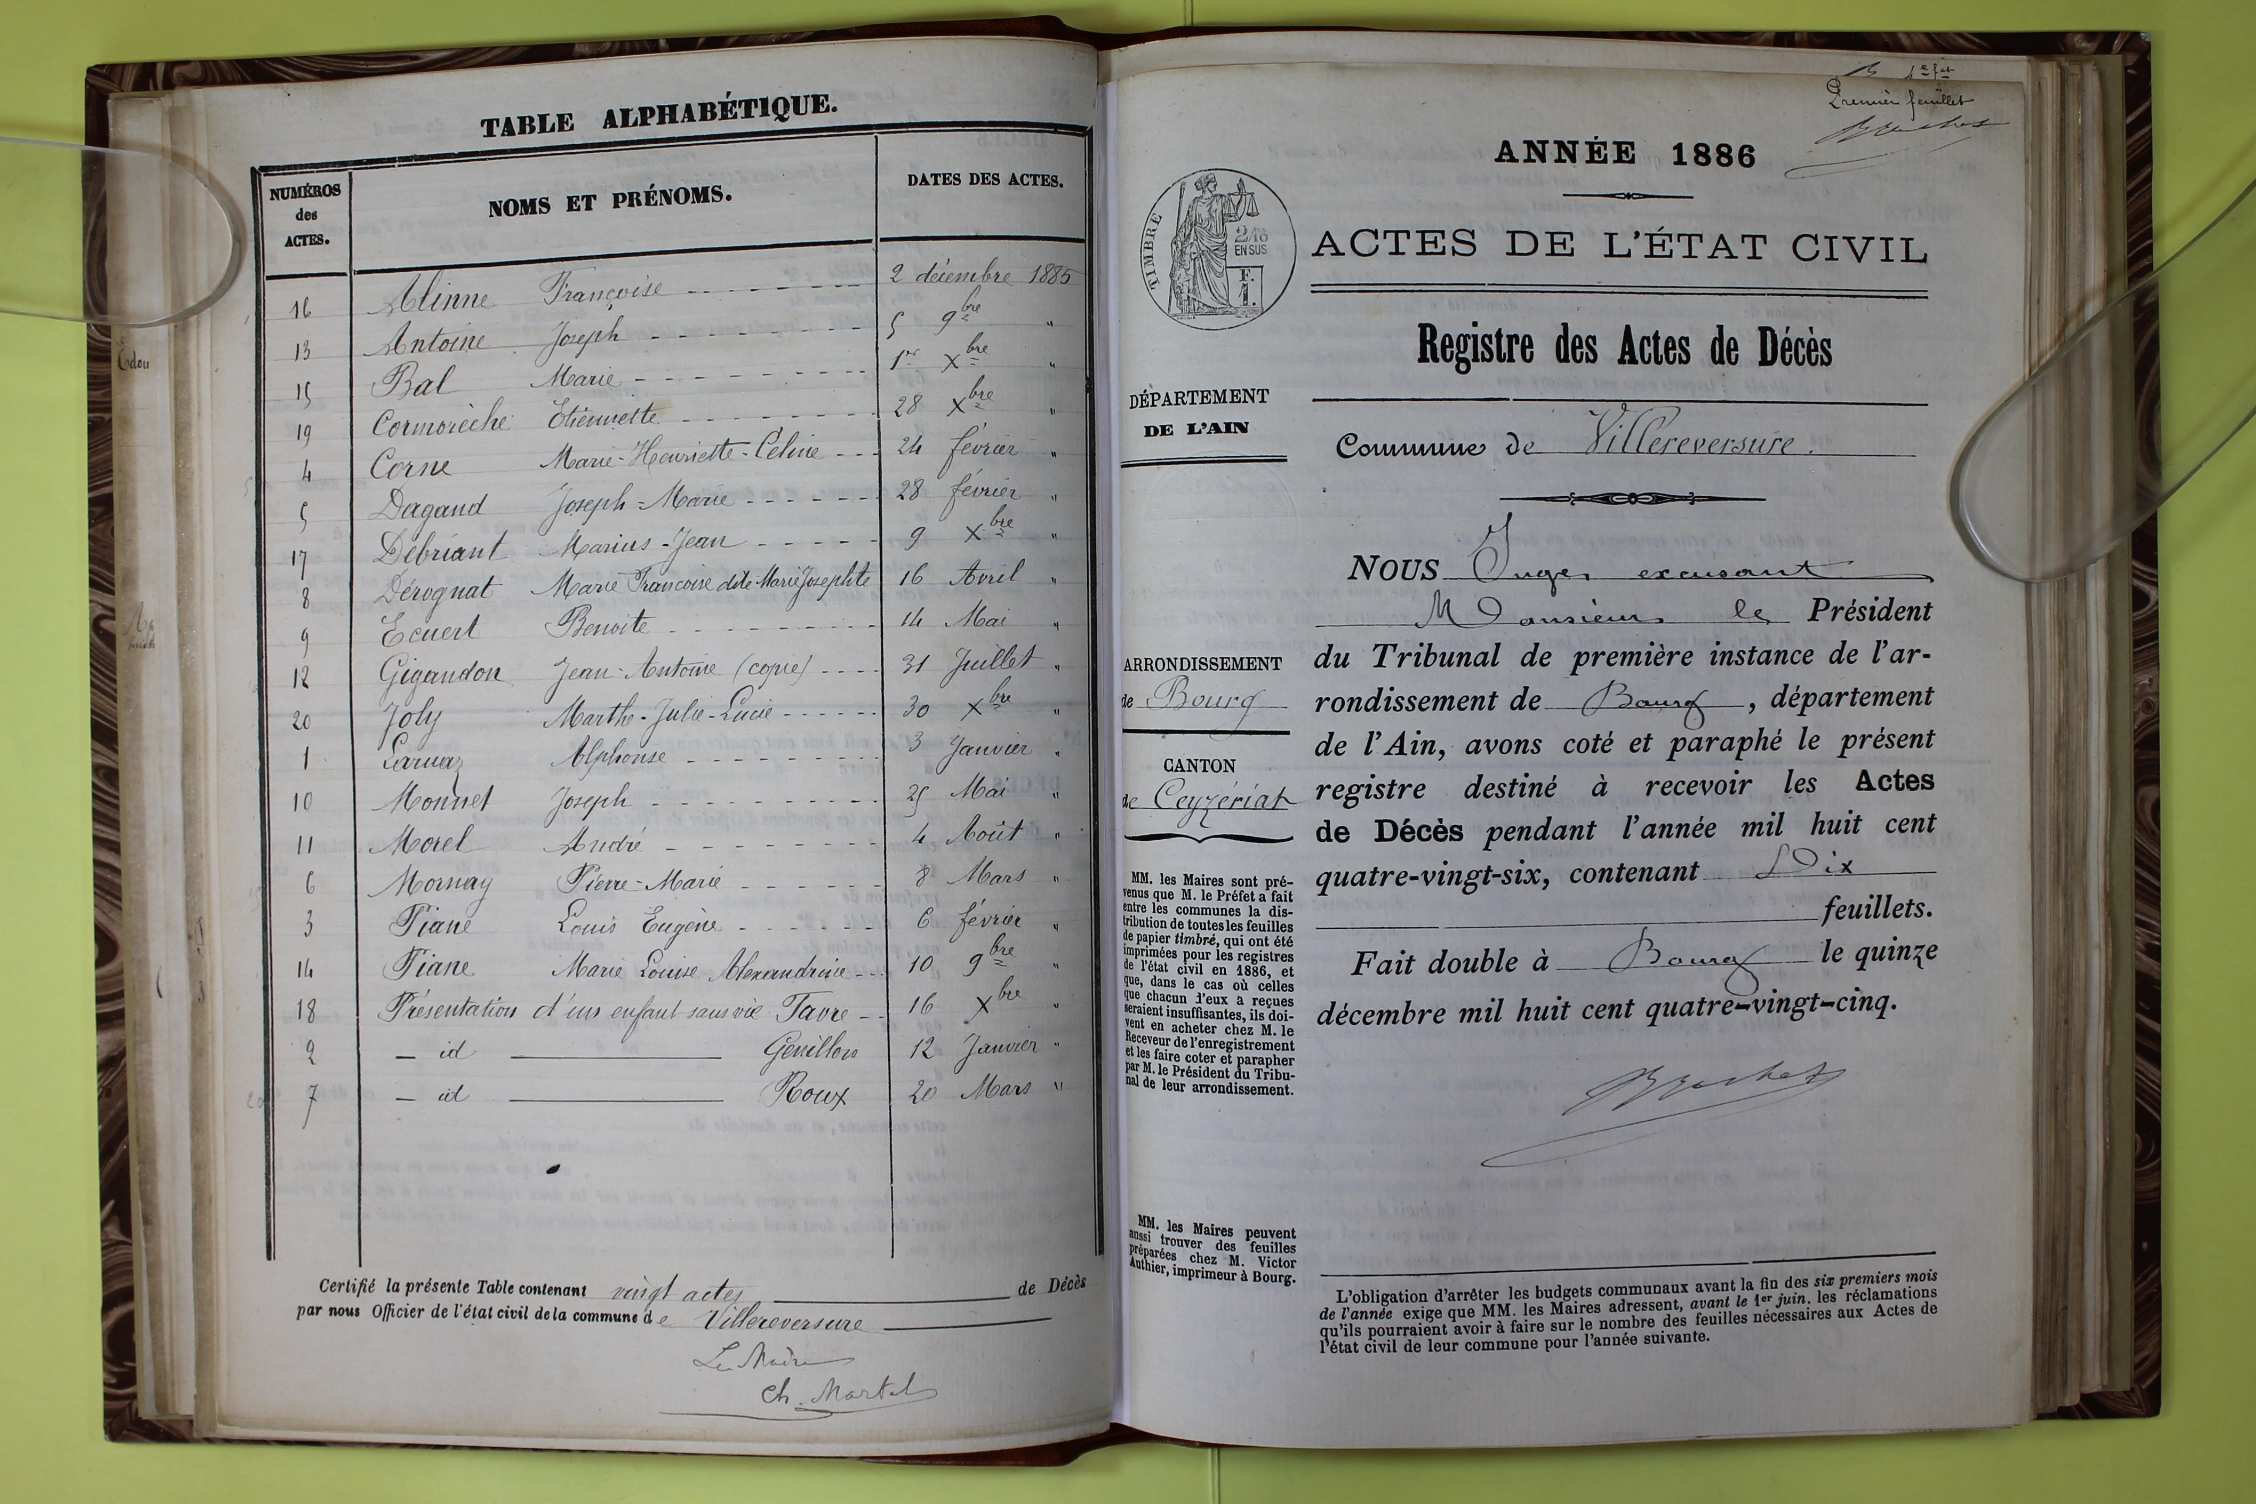 TABLE ALPHABÉTIQUE.
NUMÉROS des ACTES. NOMS ET PRÉNOMS. DATES DES ACTES.
16 Alinne Françoise 2 décembre 1885
13 Antoine Joseph 5 9bre "
15 Bal Marie 1er Xbre "
19 Cormorèche Etiennette 28 Xbre "
4 Corne Marie-Henriette-Céline 24 février "
5 Dagand Joseph-Marie 28 février "
17 Débriant Marius-Jean 9 Xbre "
8 Dérognat Marie Françoise dite Marie Josephte 16 Avril "
9 Ecuert Benoite 14 Mai "
12 Gigandon Jean-Antoine (copie) 31 Juillet "
20 Joly Marthe-Julie-Lucie 30 Xbre "
1 Larvaz Alphonse 3 Janvier "
10 Monnet Joseph 25 Mai "
11 Morel André 4 Août "
6 Mornay Pierre-Marie 8 Mars "
3 Piane Louis Eugène 6 février "
14 Piane Marie Louise Alexandrine 10 9bre "
18 Présentation d'un enfant sans vie Favre 16 Xbre "
2 — id — Genillon 12 Janvier "
7 — id — Roux 20 Mars "
Certifié la présente Table contenant vingt actes de Décès
par nous Officier de l'état civil de la commune de Villereversure
Le Maire
Ch. Martel
1er fet
Premier feuillet
ANNÉE 1886
TIMBRE
2/10
EN SUS
F.
1.
ACTES DE L'ÉTAT CIVIL
Registre des Actes de Décès
DÉPARTEMENT
DE L'AIN
Commune de Villereversure.
ARRONDISSEMENT
de Bourg
CANTON
de Ceyzériat
MM. les Maires sont pré-
venus que M. le Préfet a fait
entre les communes la dis-
tribution de toutes les feuilles
de papier timbré, qui ont été
imprimées pour les registres
de l'état civil en 1886, et
que, dans le cas où celles
que chacun d'eux a reçues
seraient insuffisantes, ils doi-
vent en acheter chez M. le
Receveur de l'enregistrement
et les faire coter et parapher
par M. le Président du Tribu-
nal de leur arrondissement.
MM. les Maires peuvent
aussi trouver des feuilles
préparées chez M. Victor
Authier, imprimeur à Bourg.
NOUS Juge, excusant
Monsieur le Président
du Tribunal de première instance de l'ar-
rondissement de Bourg, département
de l'Ain, avons coté et paraphé le présent
registre destiné à recevoir les Actes
de Décès pendant l'année mil huit cent
quatre-vingt-six, contenant Dix
feuillets.
Fait double à Bourg le quinze
décembre mil huit cent quatre-vingt-cinq.
L'obligation d'arrêter les budgets communaux avant la fin des six premiers mois
de l'année exige que MM. les Maires adressent, avant le 1er juin, les réclamations
qu'ils pourraient avoir à faire sur le nombre des feuilles nécessaires aux Actes de
l'état civil de leur commune pour l'année suivante.